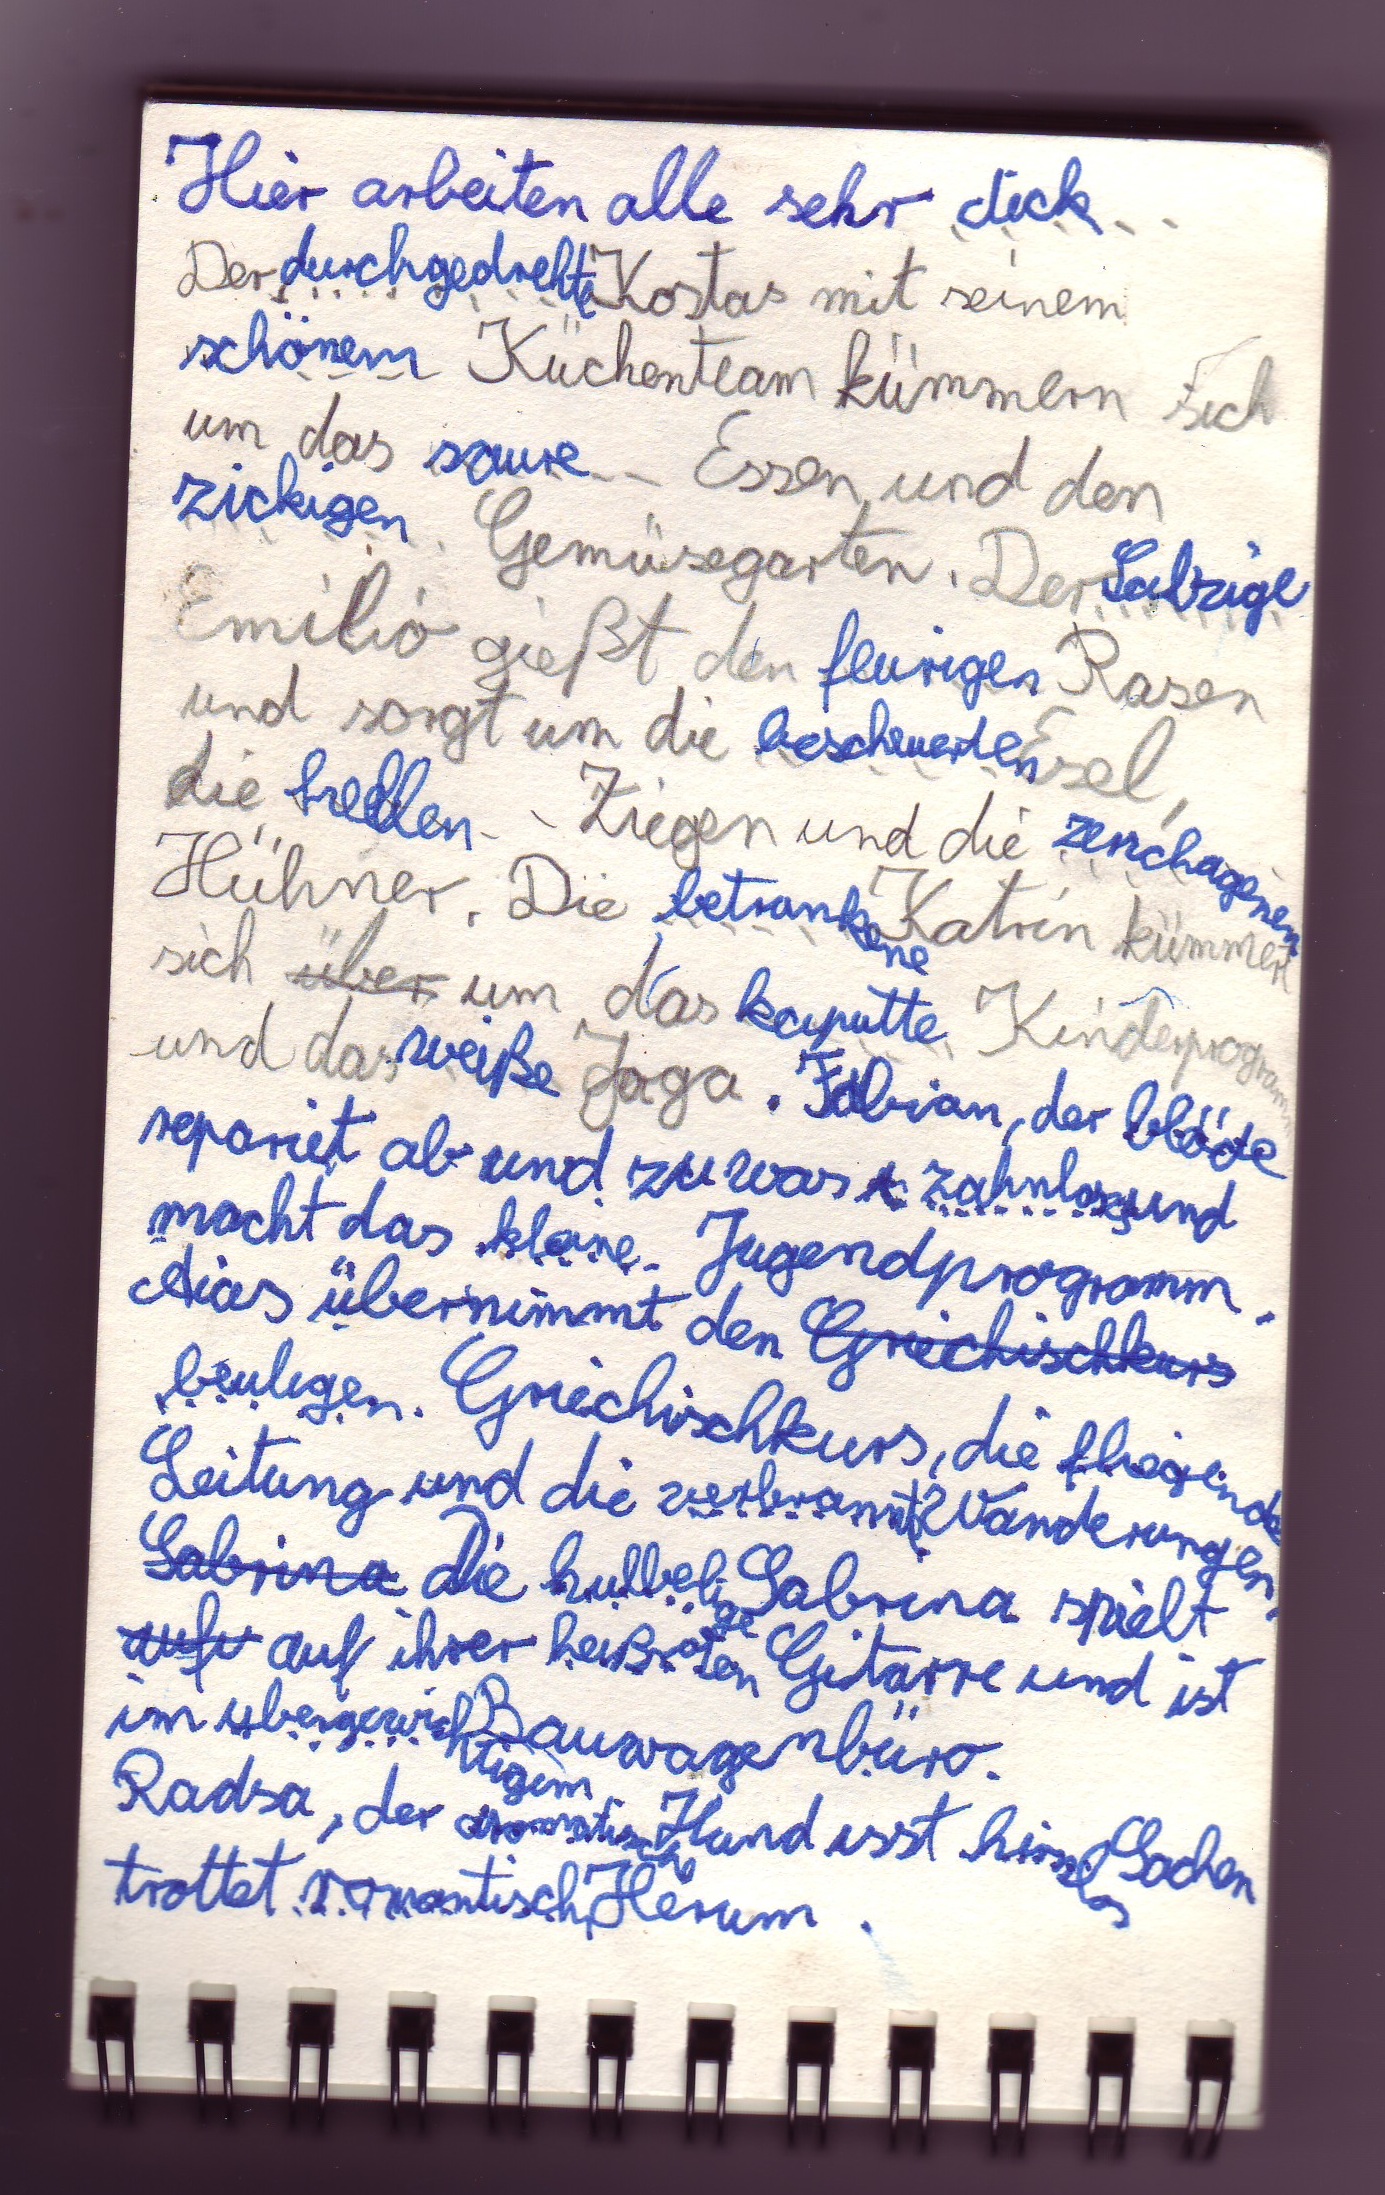 Hier arbeiten alle sehr dick
Der durchgedrehte Kostas mit seinem
schönem Küchenteam kümmern sich
um das saure Essen und den
zickigen Gemüsegarten. Der Salzige
Emilio gießt den feurigen Rasen
und sorgt um die bescheuerten Esel,
die hellen Ziegen und die
Hühner. Die betrunkene Katrin kümmert
sich über um das kaputte Kinderprogramm
und das weiße Joga. Fabian, der blöde
repariet ab und zu was zahnloses und
macht das kleine Jugendprogramm.
Aias übernimmt den Griechischkurs
beuligen Griechischkurs, die fliegende
Leitung und die verbrannte Wanderungen.
Sabrina die hubbelige Sabrina spielt
aufv auf ihrer heißroten Gitarre und ist
im übergewichtigem Bauwagenbüro.
Radsa, der aromatische Hund isst hirnlos Sachen
trottet romantisch Herum.